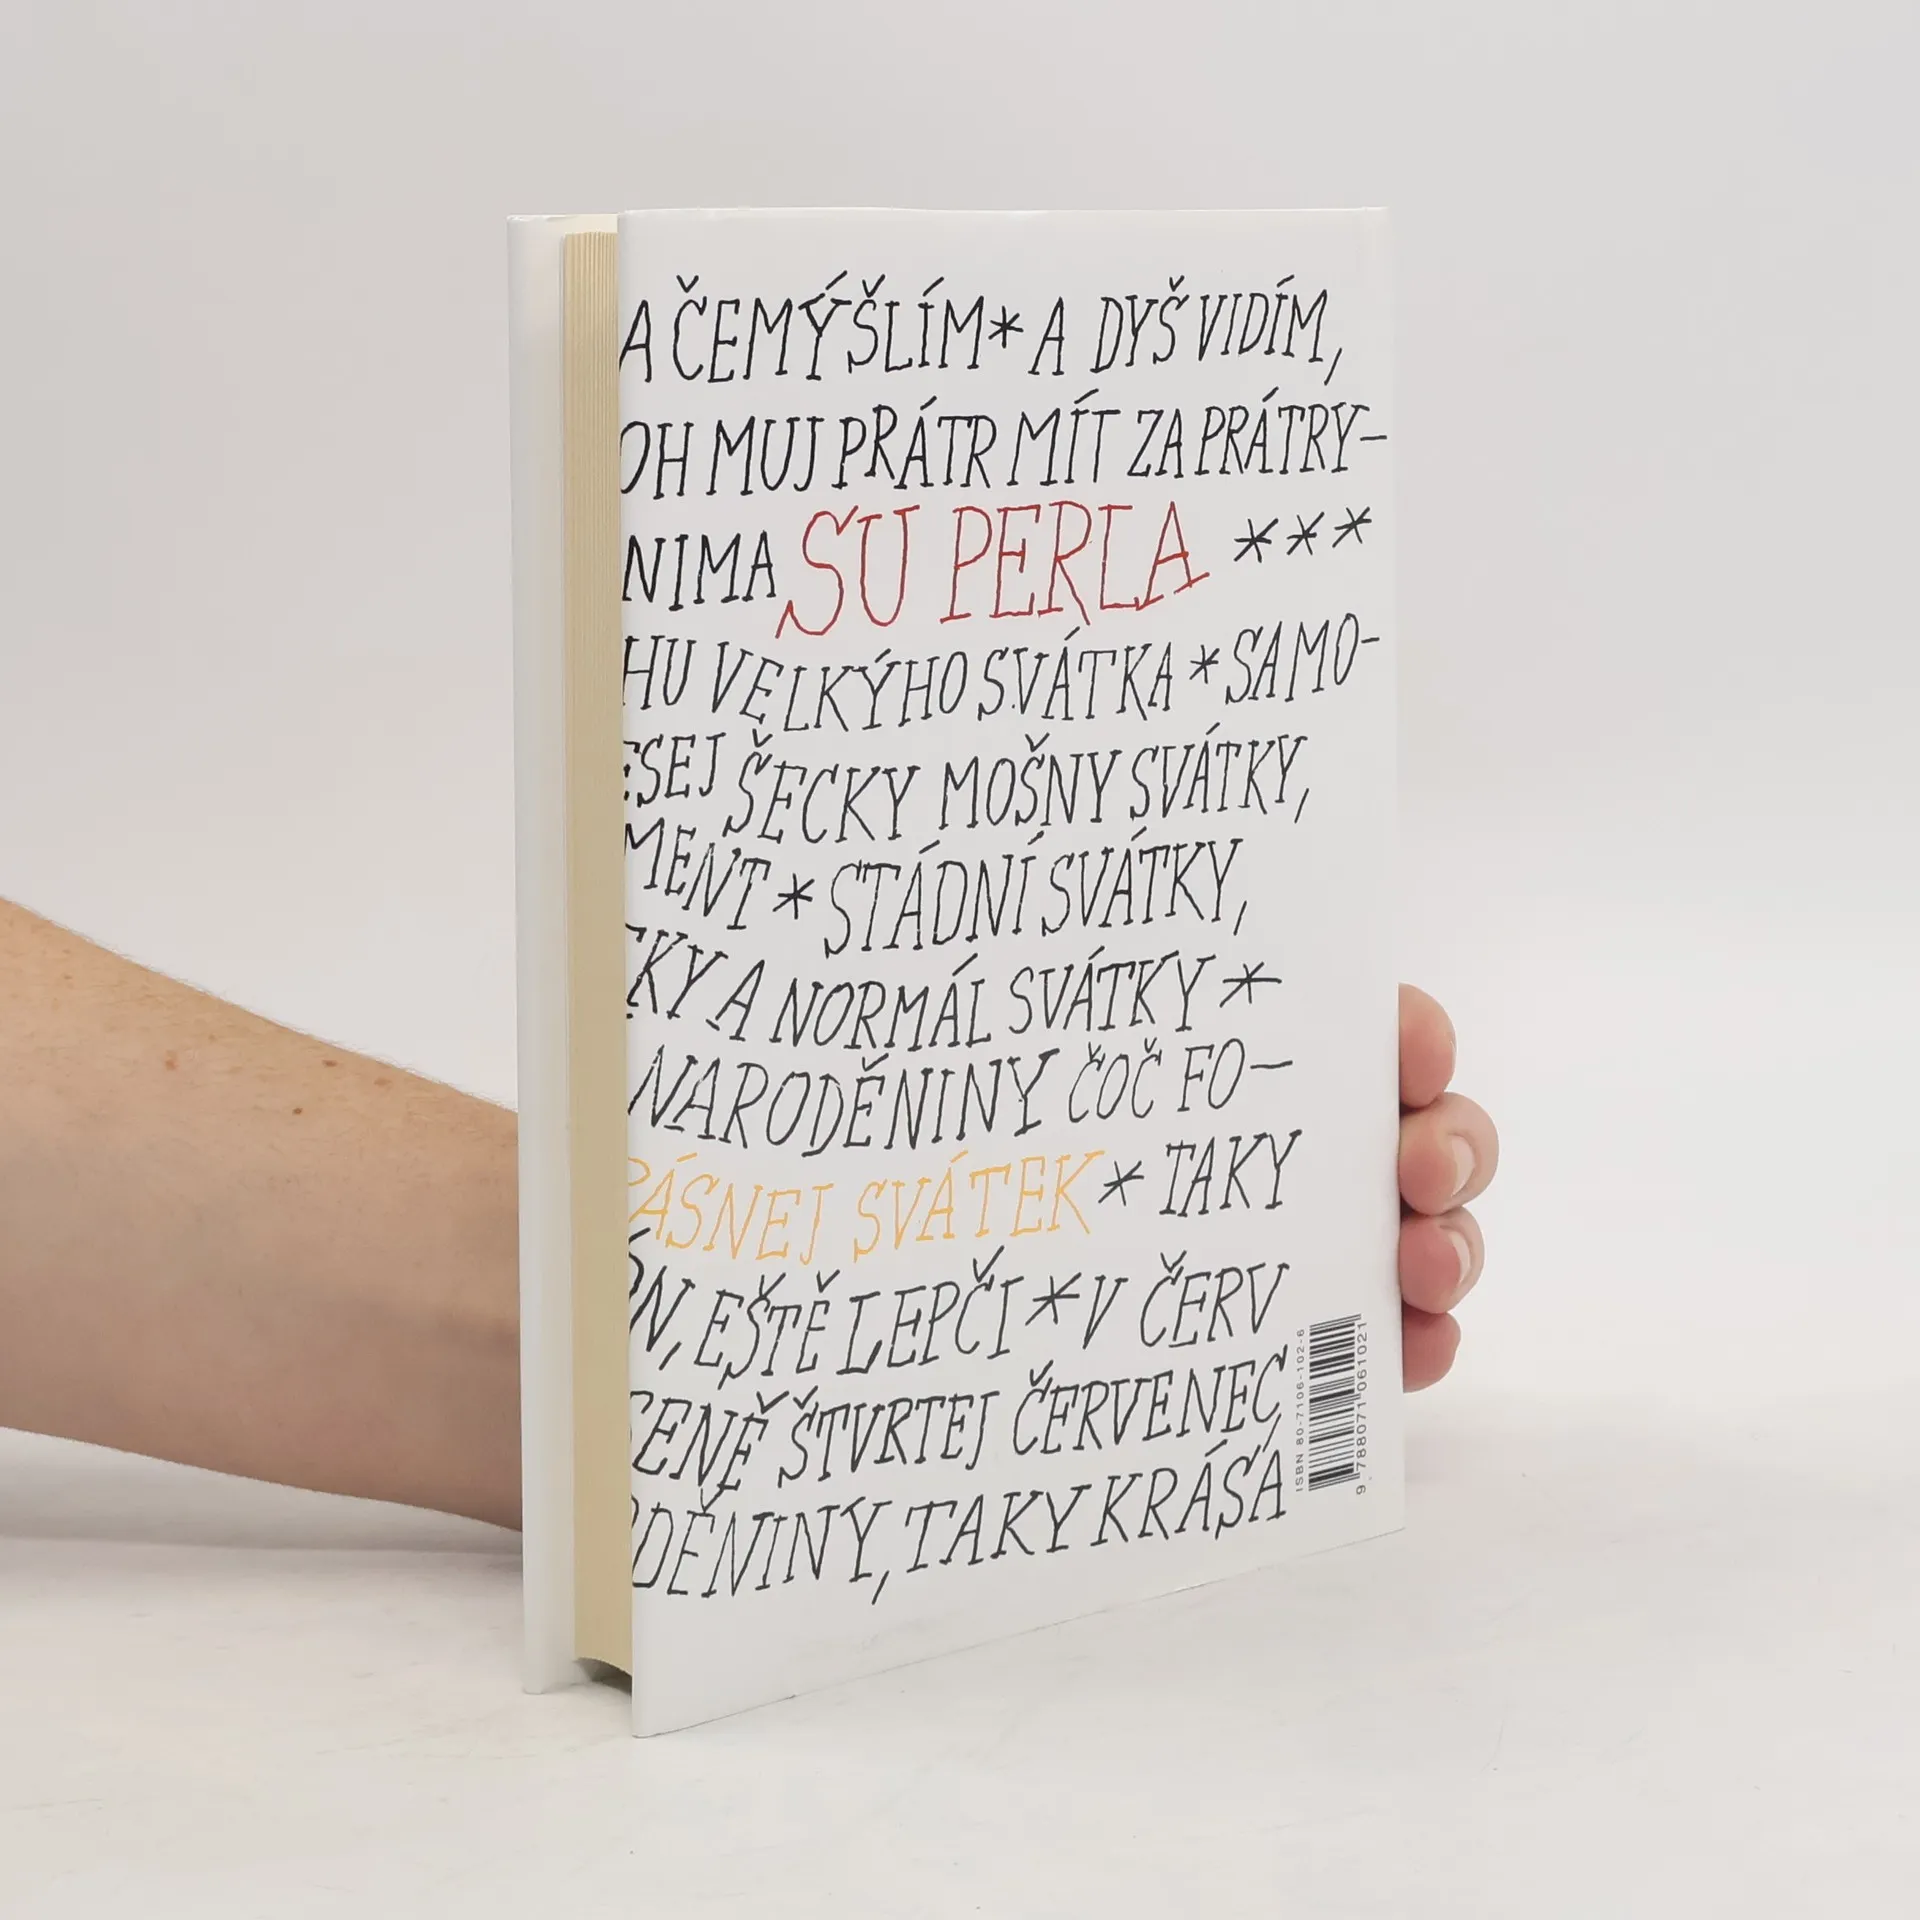 A ČEMÝŠLÍM * A DYŠ VIDÍM,
OH MUJ PRÁTR MÍT ZA PRÁTRY-
NIMA SU PERLA ***
HU VELKÝHO SVÁTKA * SAMO-
ESEJ ŠECKY MOŠNY SVÁTKY,
MENT * STÁDNÍ SVÁTKY,
KY A NORMÁL SVÁTKY *
NARODĚNINY ČOČ FO-
RÁSNEJ SVÁTEK * TAKY
ÓN, EŠTĚ LEPČI * V ČERV
SENĚ ŠTVRTEJ ČERVENEC,
DĚNINY, TAKY KRÁSÁ
ISBN 80-7106-102-6
9 788071 061021